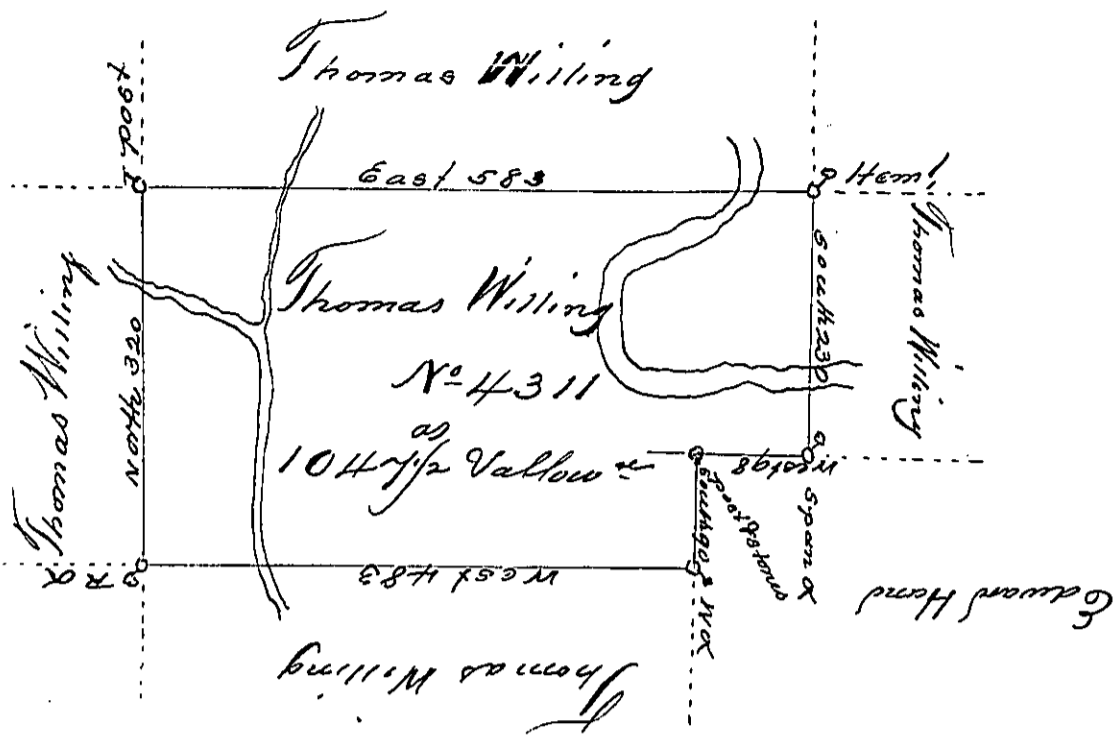 Thomas Willing
I post
East 583
Hem
Thomas Willing
South 230
Thomas Willing
North 320
Thomas Willing
No 4311
as
1047 1/2 Vallow
West 98
Span O
South 90
post
W O
R O
West 483
Edward Hand
Thomas Willing